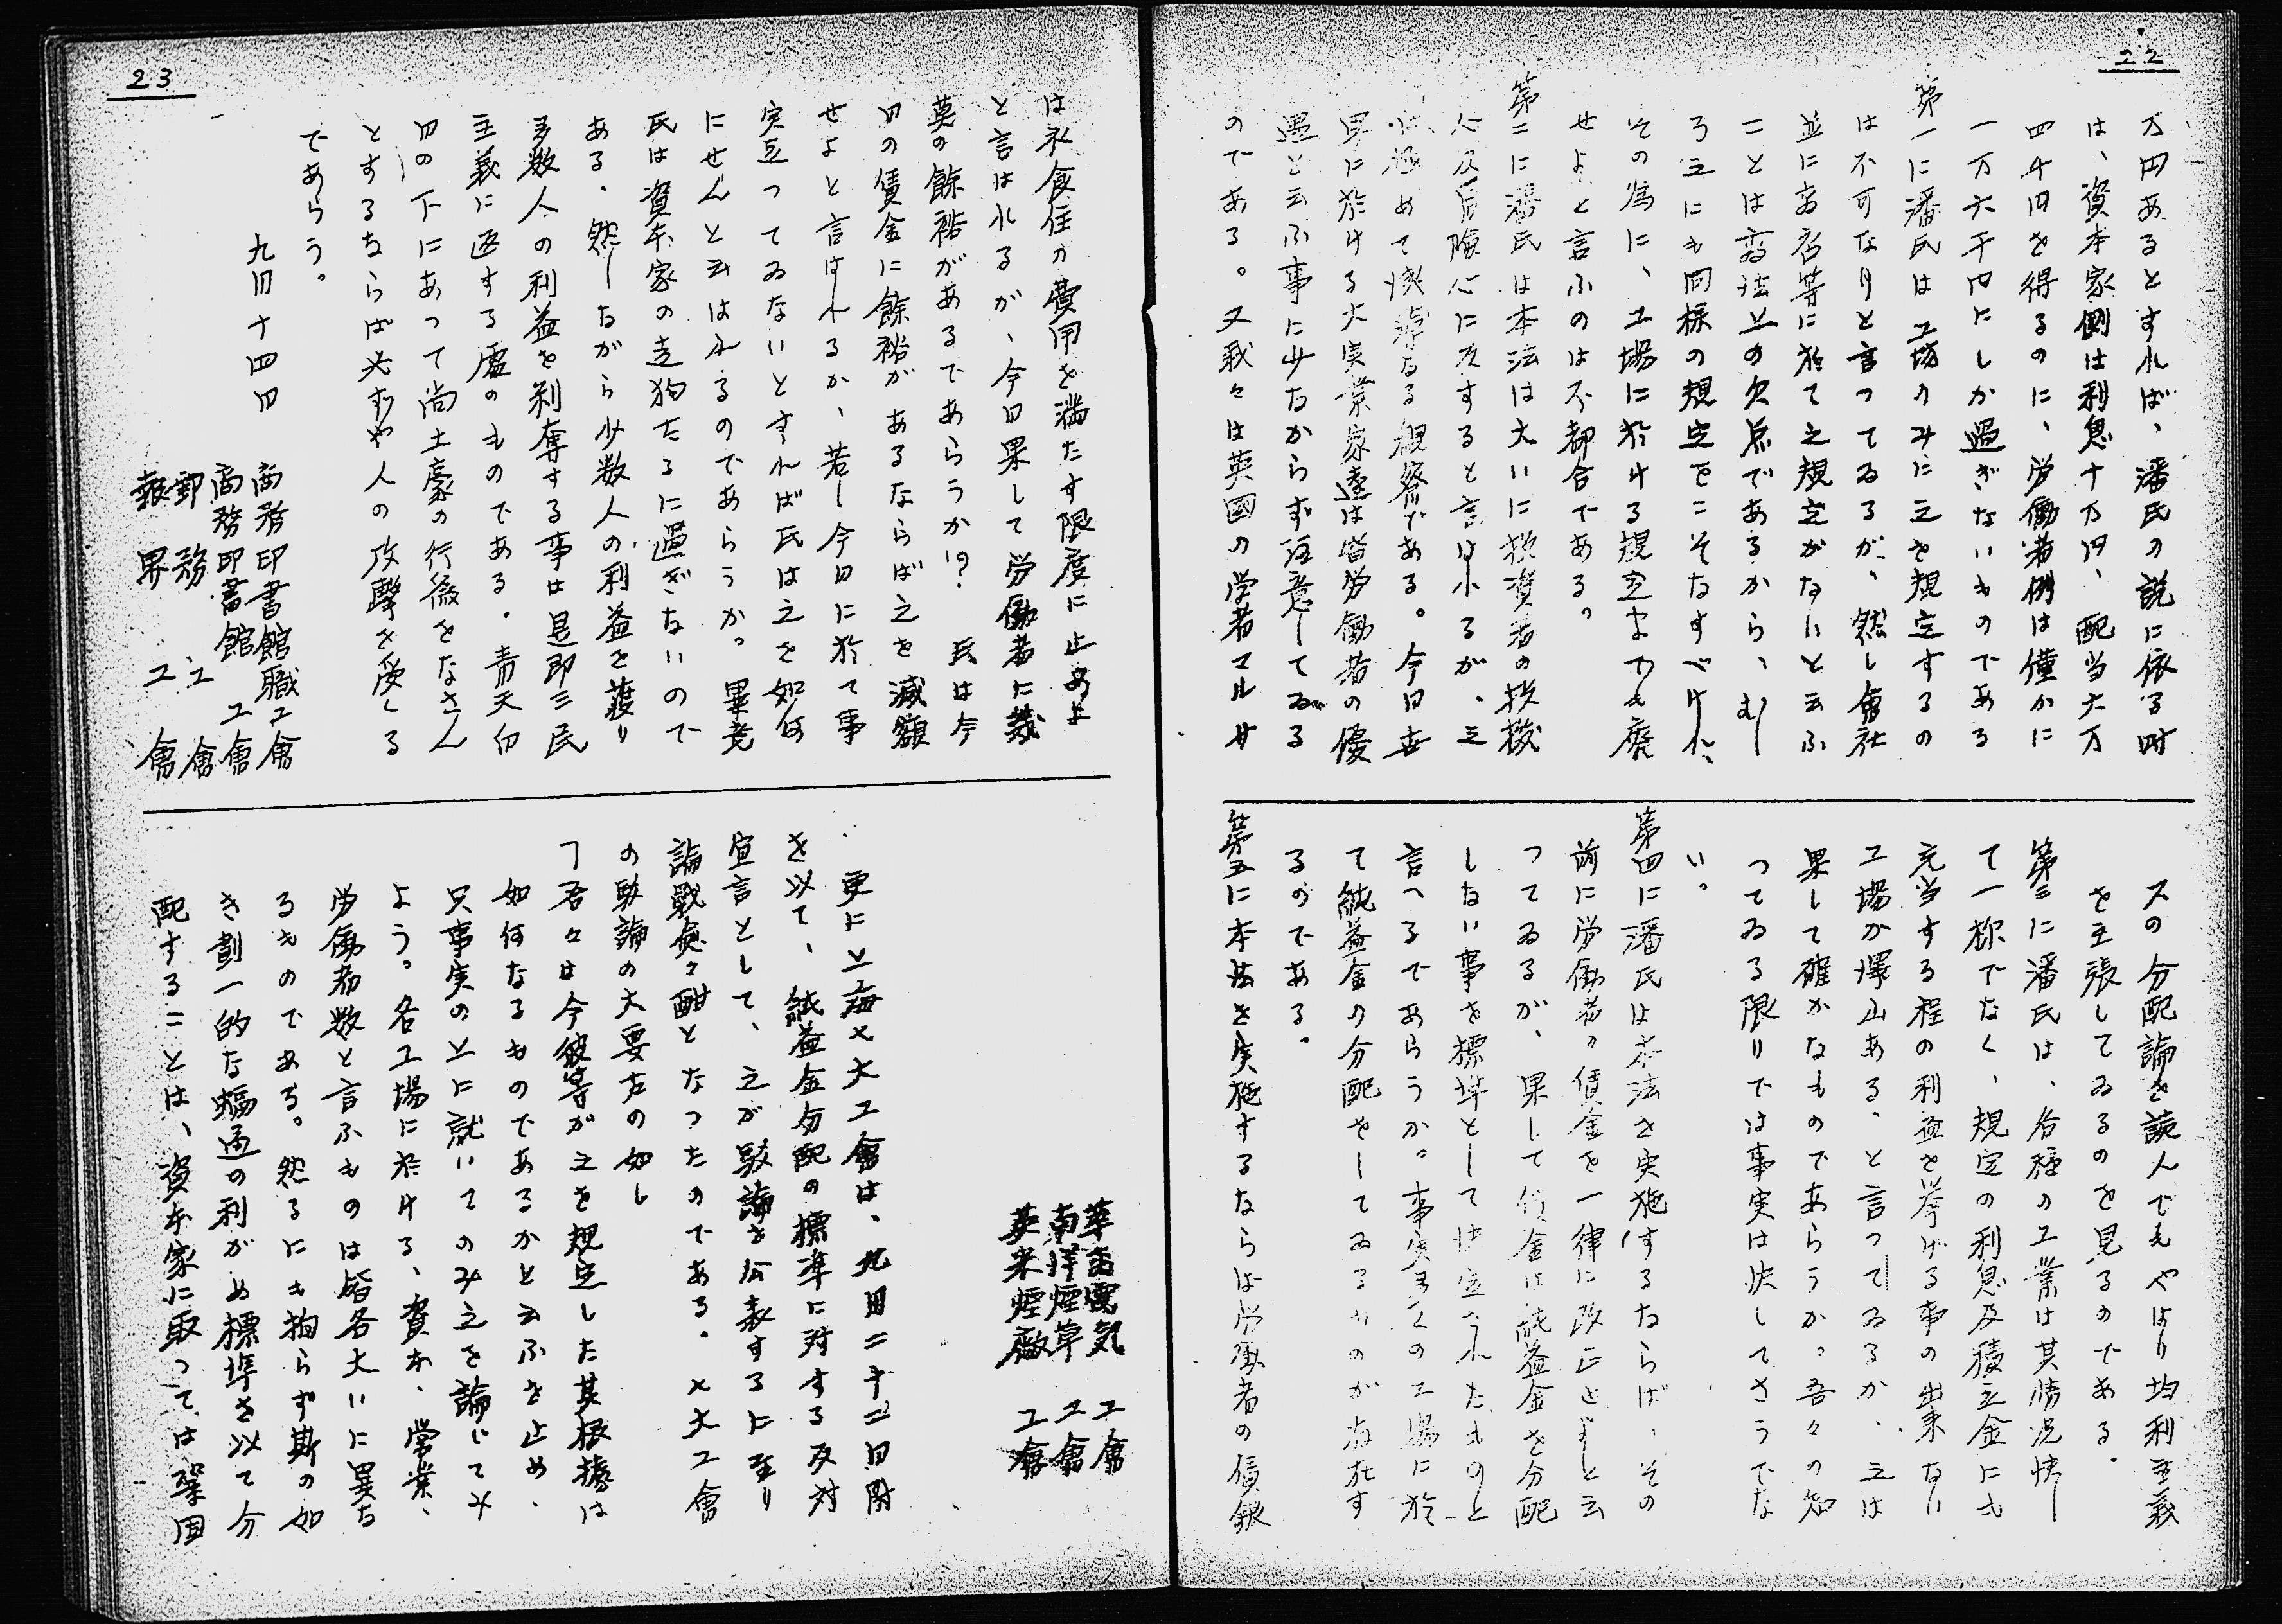 22
万円あるとすれば、潘氏の説に依る時
は、資本家側は利息十万円、配当六万
四千円を得るのに、労働者側は僅かに
一万六千円にしか過ぎないものである
第一に潘氏は工場のみに之を規定するの
は不可なりと言つてゐるが、然し會社
並に商店等に於て之規定がないと云ふ
ことは立法上の欠点であるから、むし
ろ之にも同様の規定をこそなすべけれ、
その為に、工場に於ける規定までも廃
せよと言ふのは不都合である。
第二に潘氏は本法は大いに投資者の投機
心及冒険心に反すると言はれるが、之
は極めて浅薄なる観察である。今日世
界に於ける大実業家達は皆労働者の優
遇と云ふ事に少なからず注意してゐる
のである。又我々は英國の学者マルサ
スの分配論を読んでもやはり均利主義
を主張してゐるのを見るのである。
第三に潘氏は、各種の工業は其情況決し
て一様でなく、規定の利息及積立金にも
充当する程の利益を挙げる事の出来ない
工場が澤山ある、と言つてゐるが、之は
果して確かなものであらうか。吾々の知
つてゐる限りでは事実は決してさうでな
い。
第四に潘氏は本法を実施するならば、その
前に労働者の賃金を一律に改正せずしと云
つてゐるが、果して賃金は純益金を分配
しない事を標準として決定されたものと
言へるであらうか。事実多くの工場に於
て純益金の分配をしてゐるものが存在す
るのである。
第五に本法を実施するならば労働者の賃銀
23
は衣食住の費用を満たす限度に止めよ
と言はれるが、今日果して労働者に幾
莫の餘裕があるであらうか!? 氏は今
日の賃金に餘裕があるならば之を減額
せよと言はれるか、若し今日に於て事
実立つてゐないとすれば氏は之を如何
にせんと云はれるのであらうか。畢竟
氏は資本家の走狗たるに過ぎないので
ある。然しながら少数人の利益を護り
多数人の利益を剥奪する事は是即三民
主義に逆する處のものである。青天白
日の下にあつて尚土豪の行為をなさん
とするならば必ずや人の攻擊を受くる
であらう。
九月十四日
商務印書館職工會
商務印書館工會
郵務工會
報界工會
華商電気工會
南洋煙草工會
英米煙廠工會
更に上海七大工會は、九月二十二日附
を以て、純益金分配の標準に対する反対
宣言として、之が駁論を公表するに至り
論戦愈々酣となつたのである。七大工會
の駁論の大要左の如し
「吾々は今彼等が之を規定した其根據は
如何なるものであるかと云ふを止め、
只事実の上に就いてのみ之を論じてみ
よう。各工場に於ける、資本、営業、
労働者数と言ふものは皆各大いに異な
るものである。然るにも拘らず斯の如
き劃一的な標準を以て分
配することは、資本家に取つては鞏固